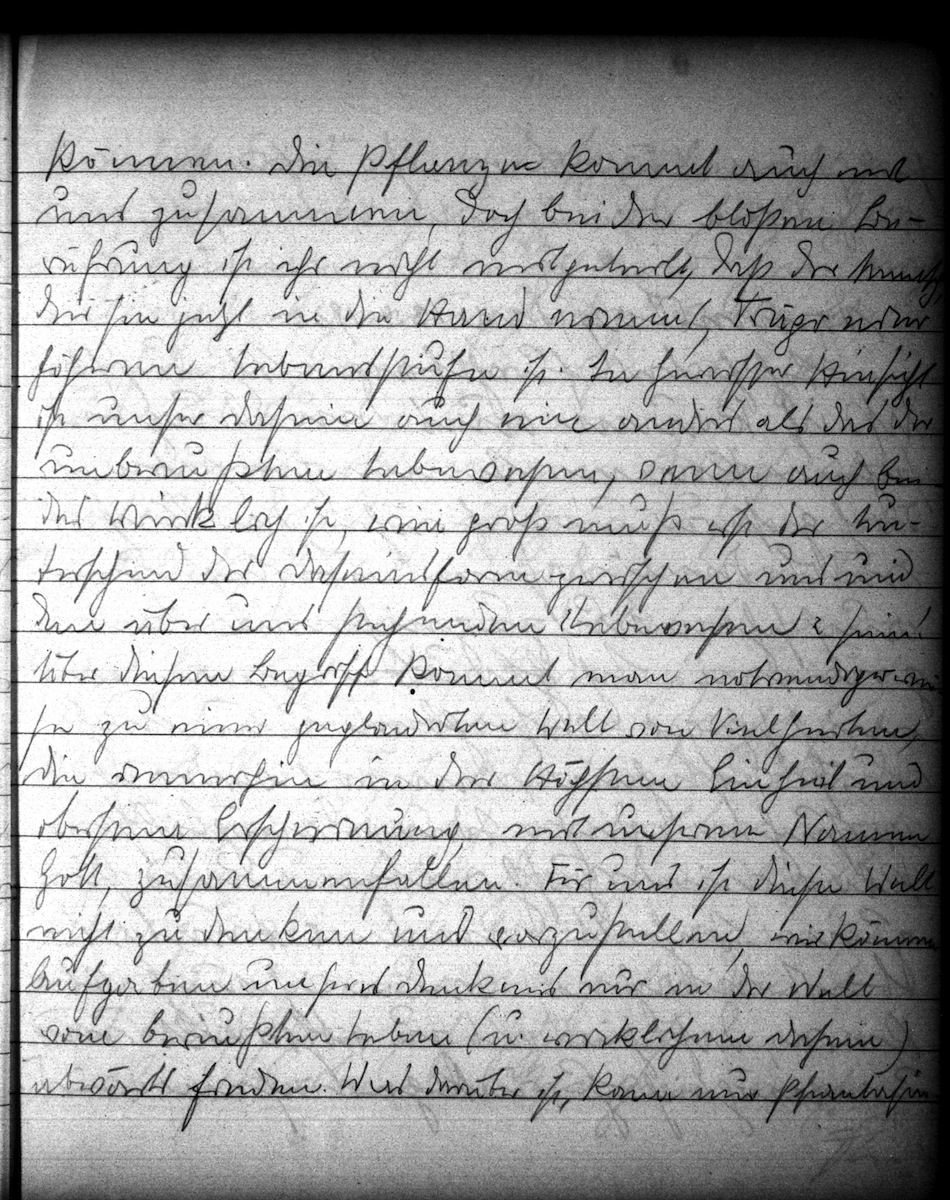 können. Die Pflanze kommt auch mit
uns zusammen, doch bei der bloßen Be-
rührung ist ihr nicht mitgeteilt, daß der Mensch,
der sie jetzt in die Hand nimmt, Träger einer
höheren Lebensstufe ist. In gewisser Hinsicht
ist unser Dasein auch ein anders als das der
unbewußten Lebewesen, wenn auch bei-
des wirklich ist, wie groß muß erst der Un-
terschied der Daseinsform zwischen uns und
den über uns stehenden Lebewesen sein!
Über diesen Begriff kommt man notwendigerwei-
se zu einer gegliederten Welt von Vielheiten,
die immerhin in der Höchsten Einheit und
obersten Erscheinung, mit unserem Namen
Gott, zusammenfallen. Für uns ist diese Welt
nicht zu denken und vorzustellen, wir können
Aufgaben unseres Denkens nur in der Welt
vom bewußten Leben (u. wirklichem Dasein)
abwärts finden. Was darüber ist, kann nur Phantasie